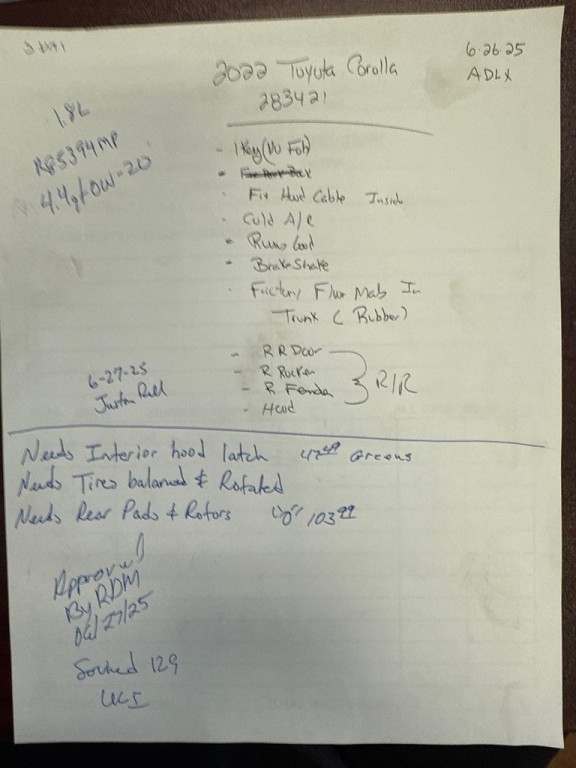 6-26-25
2022 Toyota Corolla
ADLX
283421
1.8L
R85394MP
4.4q/ 0W-20
- 1 Key (No Fob)
- Fix Hood Cable Inside
- Cold A/C
- Runs Good
- Brake Shake
- Factory Floor Mats In
Trunk (Rubber)
- RR Door
- R Rocker
- R Fender
- Hood
R/R
6-27-25
Justin
Needs Interior hood latch 47.49 Greens
Needs Tires balanced & Rotated
Needs Rear Pads & Rotors 103.99
Approved
By RDM
06/27/25
129